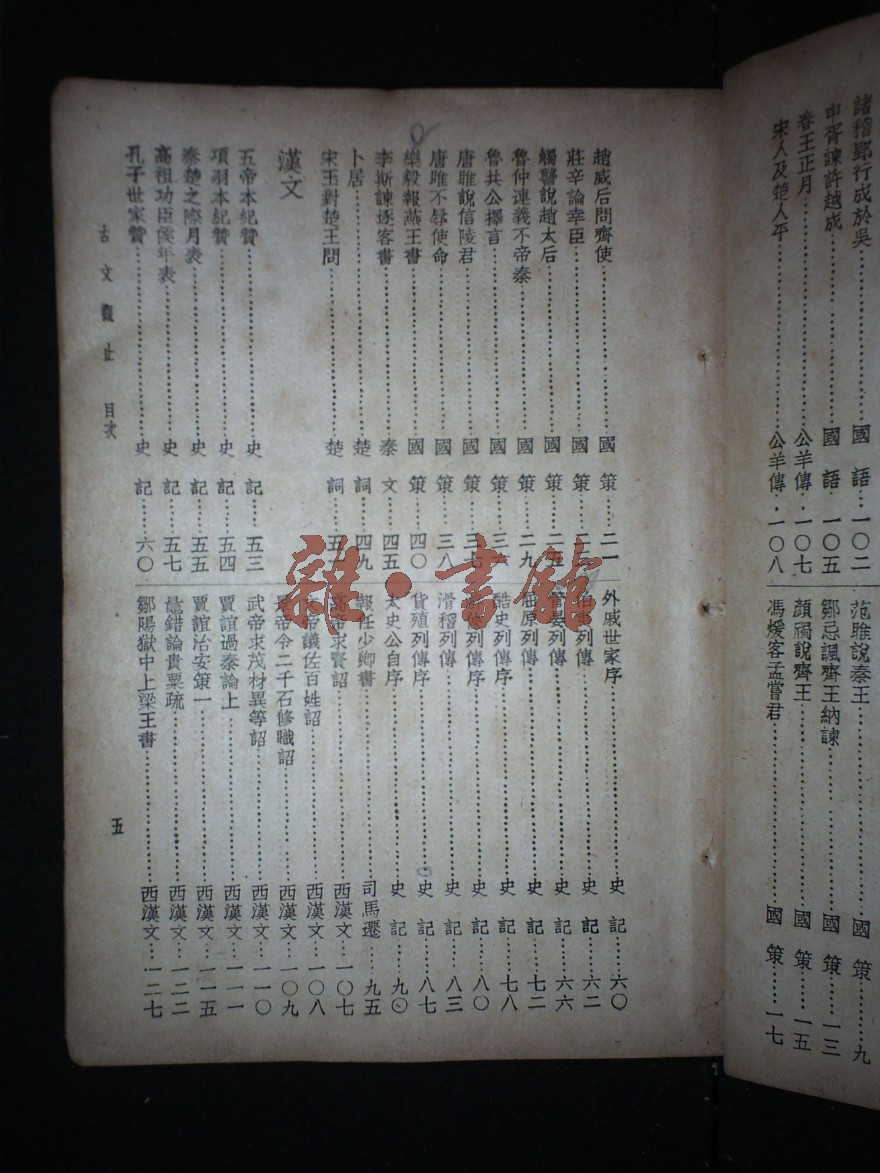 諸稽郢行成於吳…國語…一〇二
申胥諫許越成…國語…一〇五
春王正月…公羊傳…一〇七
宋人及楚人平…公羊傳…一〇八
范雎說秦王…國策…九
鄒忌諷齊王納諫…國策…一三
顏斶說齊王…國策…一五
馮煖客孟嘗君…國策…一七
趙威后問齊使…國策…二一
莊辛論幸臣…國策
觸讋說趙太后…國策…二五
魯仲連義不帝秦…國策…二九
魯共公擇言…國策
唐雎說信陵君…國策…三七
唐雎不辱使命…國策…三八
樂毅報燕王書…國策…四〇
李斯諫逐客書…秦文…四五
卜居…楚詞…四九
宋玉對楚王問…楚詞
漢文
五帝本紀贊…史記…五三
項羽本紀贊…史記…五四
秦楚之際月表…史記…五五
高祖功臣侯年表…史記…五七
孔子世家贊…史記…六〇
外戚世家序…史記…六〇
列傳…史記…六二
列傳…史記…六六
屈原列傳…史記…七二
酷吏列傳序…史記…七八
列傳序…史記…八〇
滑稽列傳…史記…八三
貨殖列傳序…史記…八七
太史公自序…史記…九〇
報任少卿書…司馬遷…九五
高帝求賢詔…西漢文…一〇七
文帝議佐百姓詔…西漢文…一〇八
景帝令二千石修職詔…西漢文…一〇九
武帝求茂材異等詔…西漢文…一一〇
賈誼過秦論上…西漢文…一一一
賈誼治安策一…西漢文…一一五
鼂錯論貴粟疏…西漢文…一二二
鄒陽獄中上梁王書…西漢文…一二七
古文觀止 目次
五
雜·書館